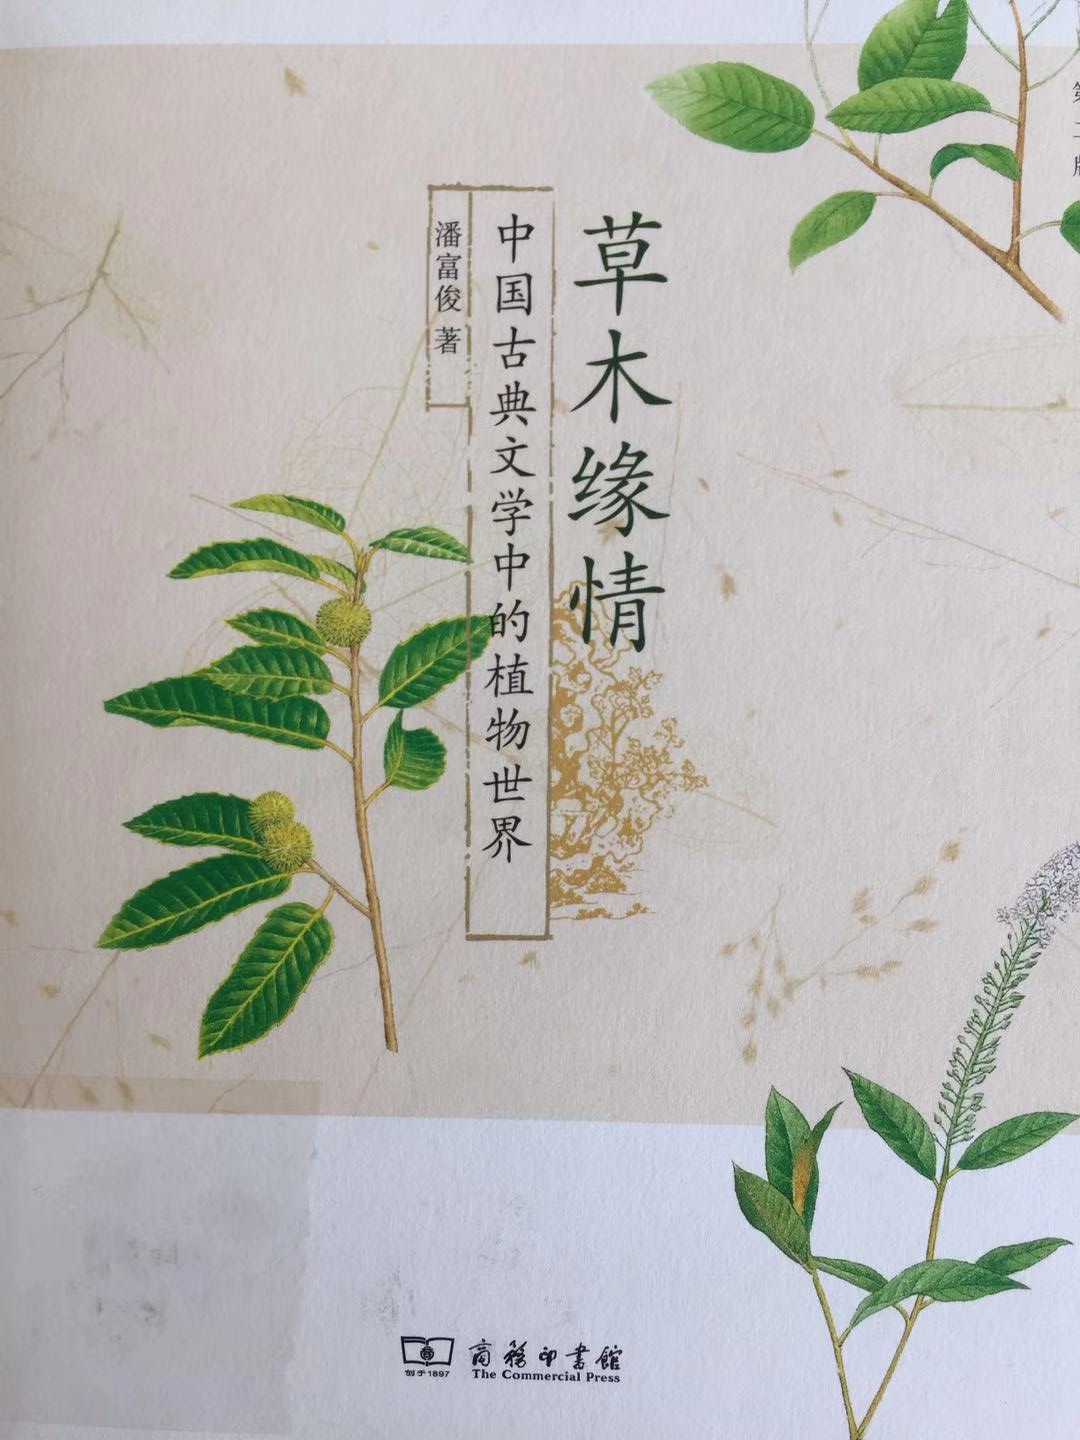 草木缘情
中国古典文学中的植物世界
潘富俊 著
商務印書館
创于1897
The Commercial Press